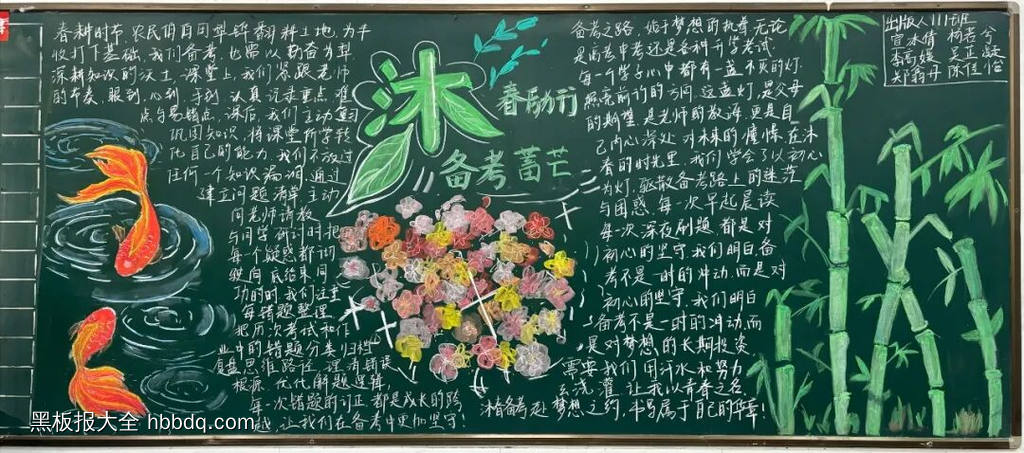 沐
春励行
备考蓄芒
春耕时节 农民们自问犁铧翻耕土地,为丰
收打下基础,我们备考也需以勤奋为犁
深耕知识的沃土 课堂上,我们紧跟老师
的节奏 眼到,心到 手到 认真记录重点 难
点与易错点,课后,我们主动
巩固知识,将课堂所学转
化自己的能力,我们不放过
任何一个知识漏洞,通过
建立问题清单 主动
向老师请教
与同学研讨时把
每一个疑惑都
纵向 底
功的时,我们注重
每错题整理
把历次考试和作
业中的错题分类归档
盘思维路径 理清错误
根源 优化解题逻辑
每一次错题的订正 都是成长的
越,让我们在备考中更加坚守!
备考之路,始于梦想的执着 无论
是高考中考还是各科升学考试
每一个学子心中都有一盏不灭的灯
照亮前行的方向,这盏灯,是父母
的期望 是老师的教诲,更是自
己内心深处 对未来的憧憬,在沐
春的时光里 我们学会了以初心
为灯,驱散备考路上的迷茫
与困惑 每一次早起晨读
每一次深夜刷题 都是对
初心的坚守,我们明白,备
考不是一时的冲动,而是对
初心的坚守,我们明白
备考不是一时的冲动,而
是对梦想的长期投资
需要我们用汗水和努力
去浇灌 让我以青春之名
沐春备考 赴梦想之约,书写属于自己的华章!
出版人 111班
黑板报大全 hbbdq.com